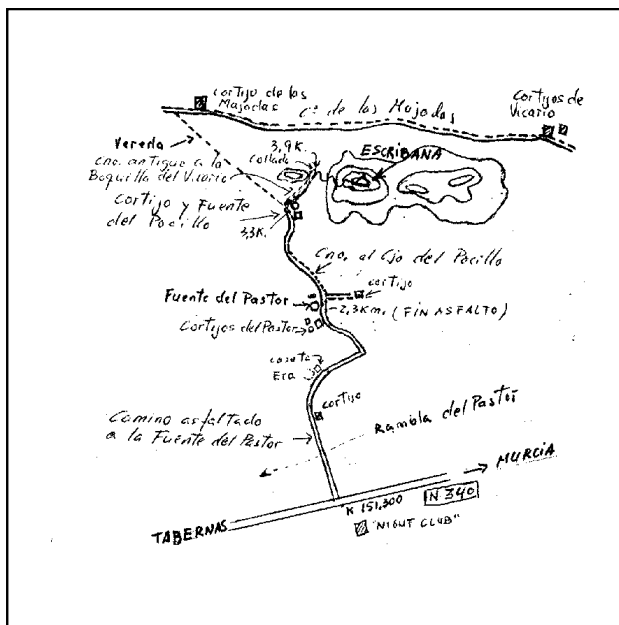 Cortijo de las
Majadas
Cº de las Majadas
Cortijos de
Vicario
Vereda
3,9K.
Collado
ESCRIBANA
Cno. antiguo a la
Boquilla del Vicario
Cortijo y Fuente
del Pocillo
3,3K.
Cno. al Cjo del Pocillo
cortijo
Fuente del Pastor
2,3Km. (FIN ASFALTO)
Cortijos del Pastor
caseta
Era
cortijo
Camino asfaltado
a la Fuente del Pastor
Rambla del Pastor
MURCIA
N 340
K 151,300
TABERNAS
"NIGHT CLUB"